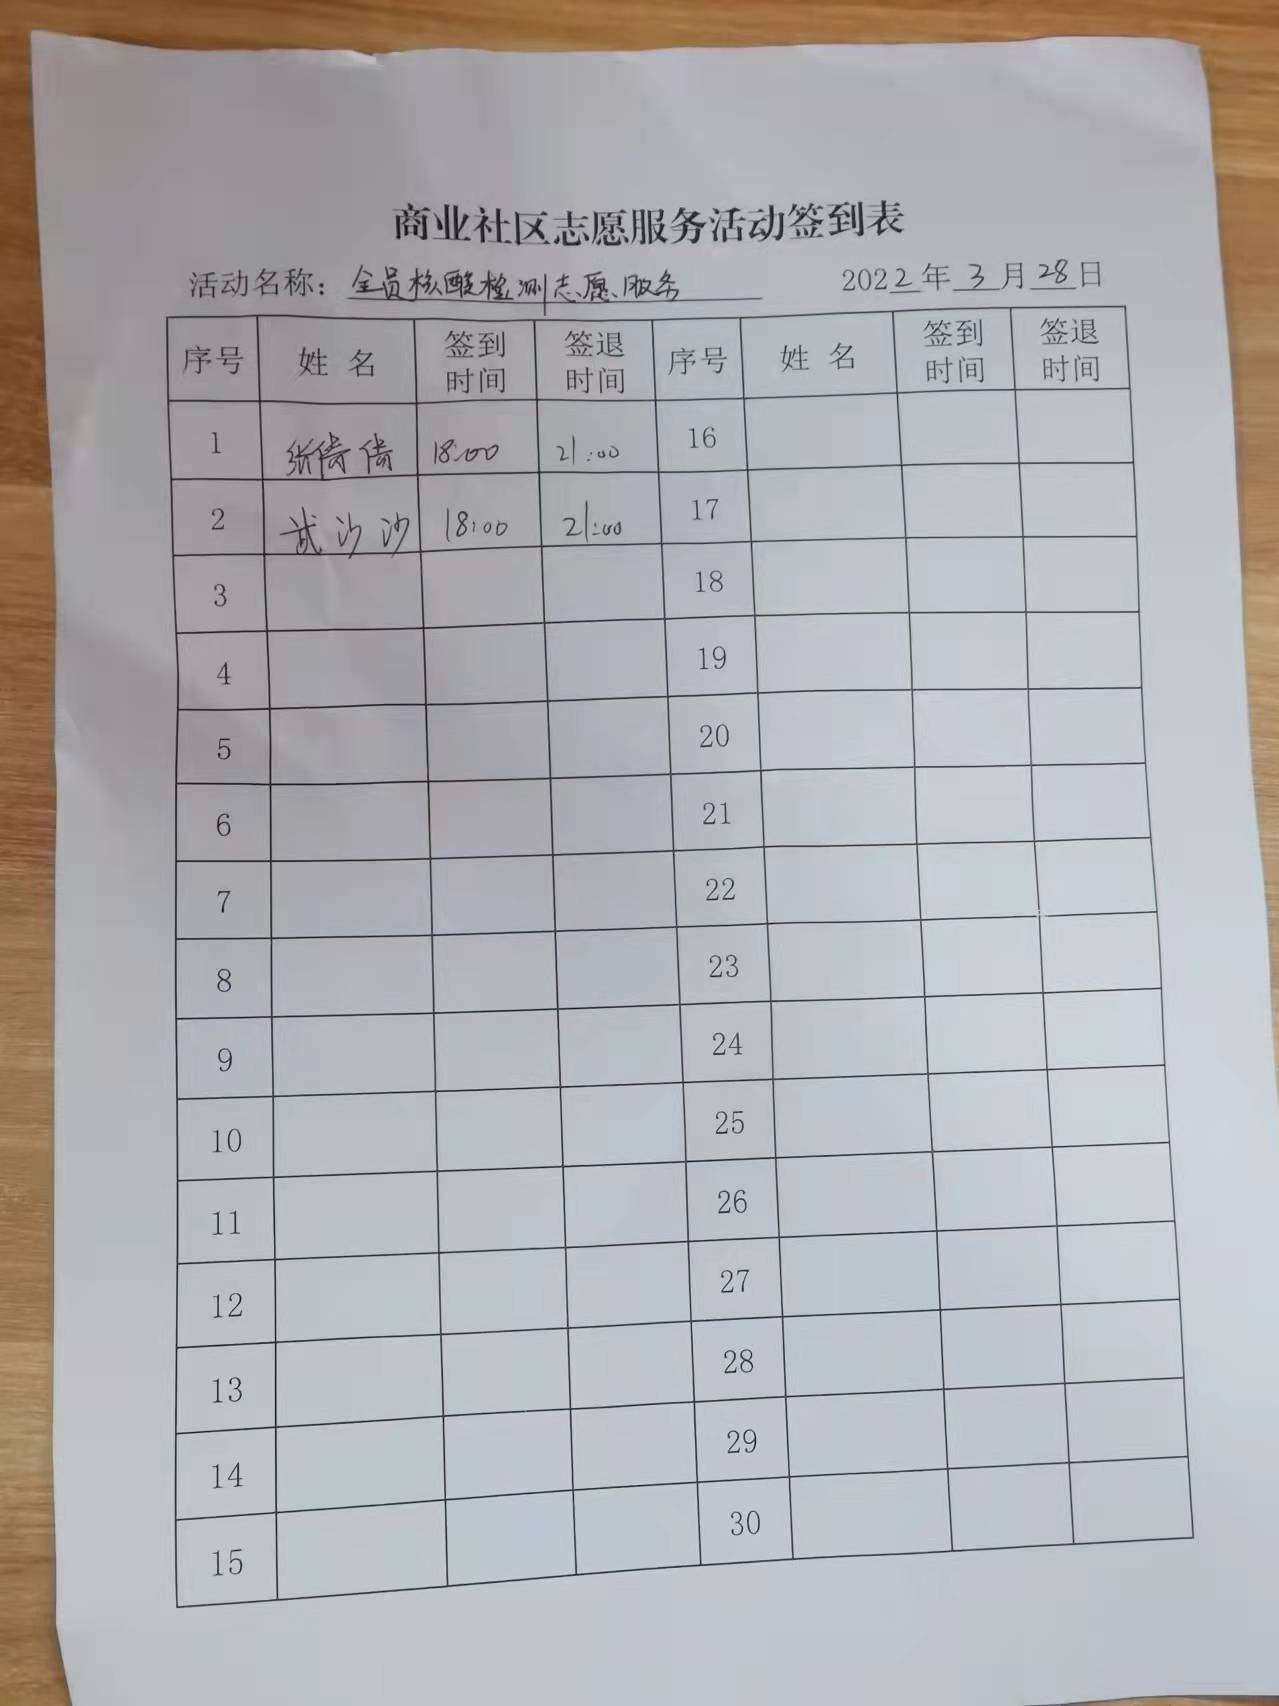 商业社区志愿服务活动签到表
活动名称：全员核酸检测志愿服务 2022年3月28日
序号 姓名 签到时间 签退时间 序号 姓名 签到时间 签退时间
1 张倩倩 18:00 21:00 16
2 武沙沙 18:00 21:00 17
3 18
4 19
5 20
6 21
7 22
8 23
9 24
10 25
11 26
12 27
13 28
14 29
15 30